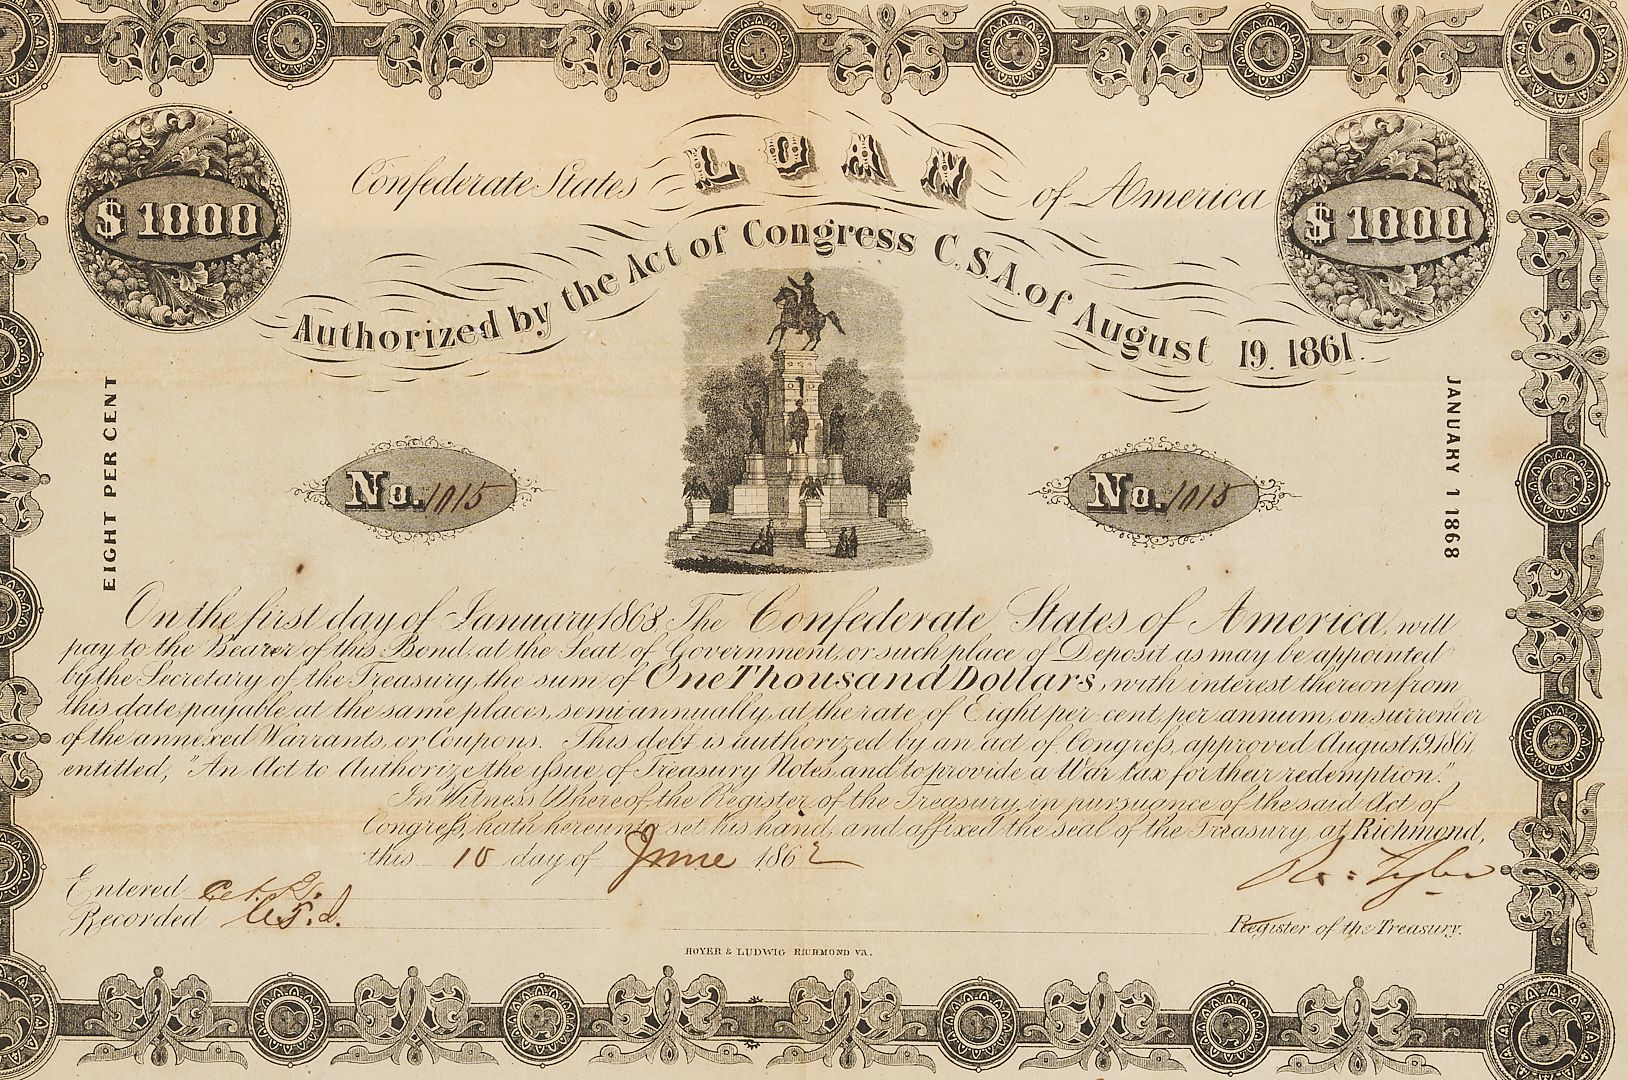 Confederate States LOAN of America
$ 1000
$ 1000
Authorized by the Act of Congress C.S.A. of August 19. 1861.
EIGHT PER CENT
JANUARY 1 1868
No. 1015
No. 1015
On the first day of January 1868, The Confederate States of America, will
pay to the Bearer of this Bond, at the Seat of Government, or such place of Deposit as may be appointed
by the Secretary of the Treasury, the sum of One Thousand Dollars, with interest thereon from
this date, payable at the same places, semi-annually, at the rate of Eight per cent, per annum, on surrender
of the annexed Warrants, or Coupons. This debt is authorized by an act of Congress, approved August 19, 1861,
entitled, "An Act to Authorize the issue of Treasury Notes, and to provide a War tax for their redemption."
In Witness Whereof, the Register of the Treasury, in pursuance of the said Act of
Congress, hath hereunto set his hand, and affixed the seal of the Treasury, at Richmond,
this 10 day of June 1862
Entered
Ro: Tyler
Recorded
Register of the Treasury.
HOYER & LUDWIG RICHMOND VA.